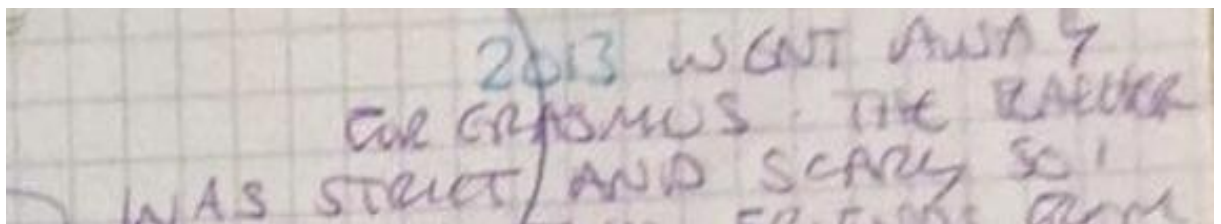 2013 WENT AWAY
FOR ERASMUS. THE
WAS STRICT AND SCARY SO I
FROM